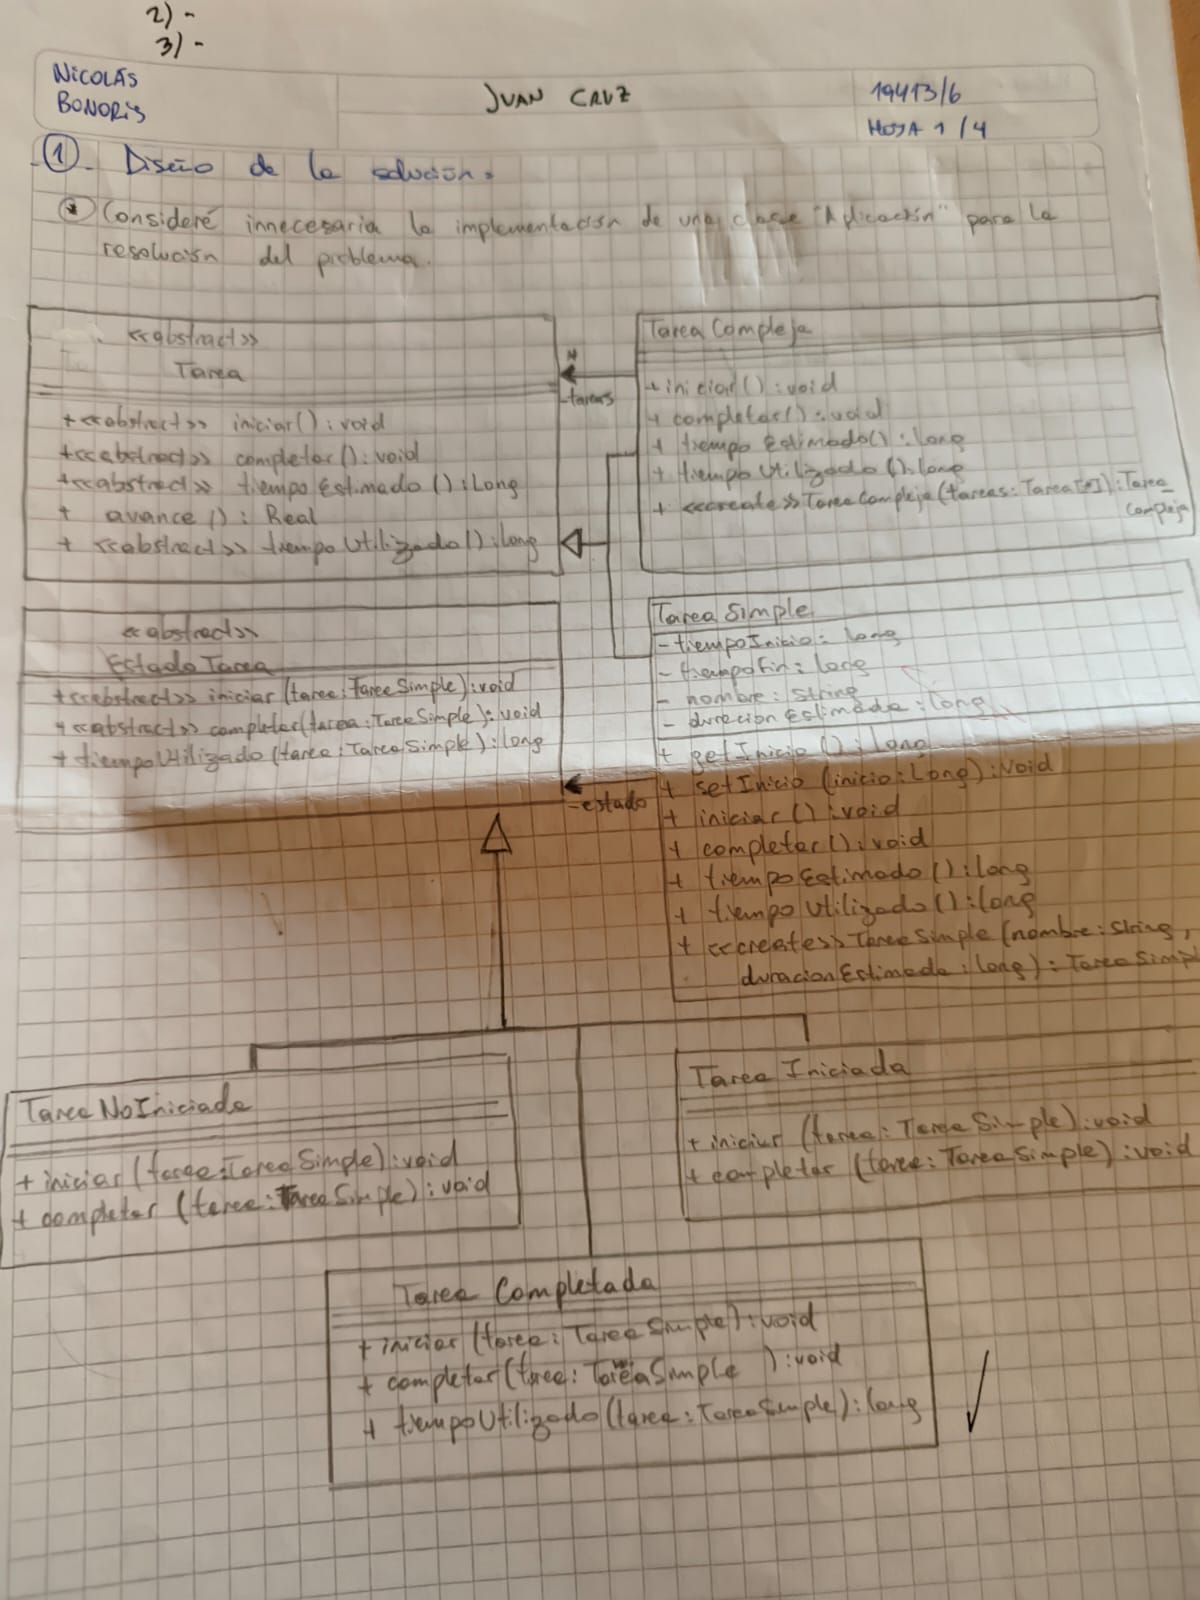 2) -
3) -
NICOLÁS
BONORIS
JUAN CRUZ
19413/6
HOJA 1/4
1 - Diseño de la solución.
* Consideré innecesaria la implementación de una clase "Aplicación" para la
resolución del problema.
<<abstract>>
Tarea
+<<abstract>> iniciar(): void
+<<abstract>> completar(): void
+<<abstract>> tiempoEstimado(): Long
+ avance(): Real
+ <<abstract>> tiempoUtilizado(): long
*
-tareas
Tarea Compleja
+iniciar(): void
+ completar(): void
+ tiempoEstimado(): long
+ tiempoUtilizado(): long
+ <<create>> TareaCompleja(tareas: Tarea[*]): Tarea
Compleja
<<abstract>>
Estado Tarea
+<<abstract>> iniciar (tarea: TareaSimple): void
+<<abstract>> completar(tarea: TareaSimple): void
+ tiempoUtilizado (tarea: TareaSimple): long
-estado
Tarea Simple
- tiempoInicio: long
- tiempoFin: long
- nombre: String
- duracionEstimada: long
+ getInicio(): long
+ setInicio (inicio: Long): void
+ iniciar(): void
+ completar(): void
+ tiempoEstimado(): long
+ tiempoUtilizado(): long
+ <<create>> TareaSimple (nombre: String,
duracionEstimada: long): TareaSimpl
Tarea NoIniciada
+ iniciar (tarea: TareaSimple): void
+ completar (tarea: TareaSimple): void
Tarea Iniciada
+ iniciar (tarea: TareaSimple): void
+ completar (tarea: TareaSimple): void
Tarea Completada
+ iniciar (tarea: TareaSimple): void
+ completar(tarea: TareaSimple ): void
+ tiempoUtilizado (tarea: TareaSimple): long